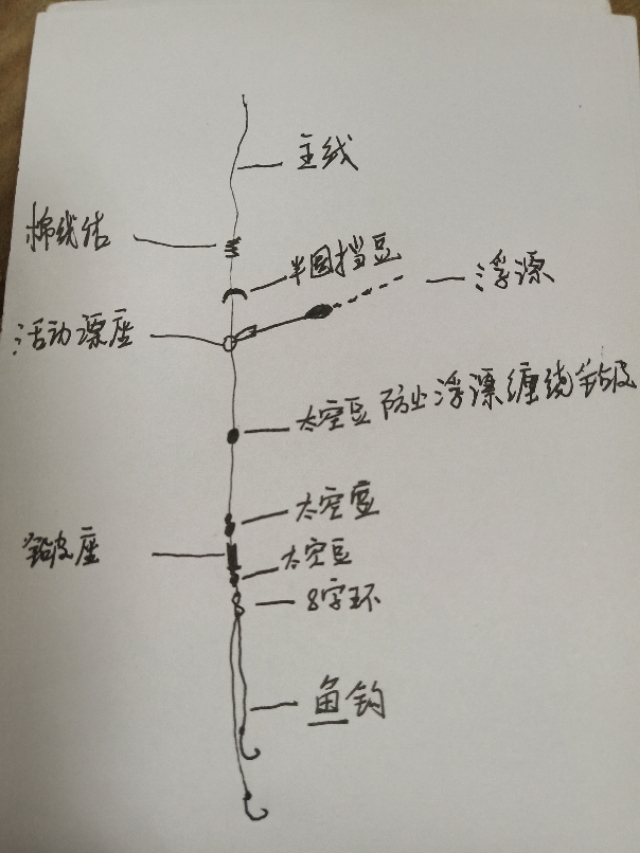 主线
棉线结
半圆挡豆
浮漂
活动漂座
太空豆 防止浮漂缠绕铅皮
太空豆
铅皮座
太空豆
8字环
鱼钩